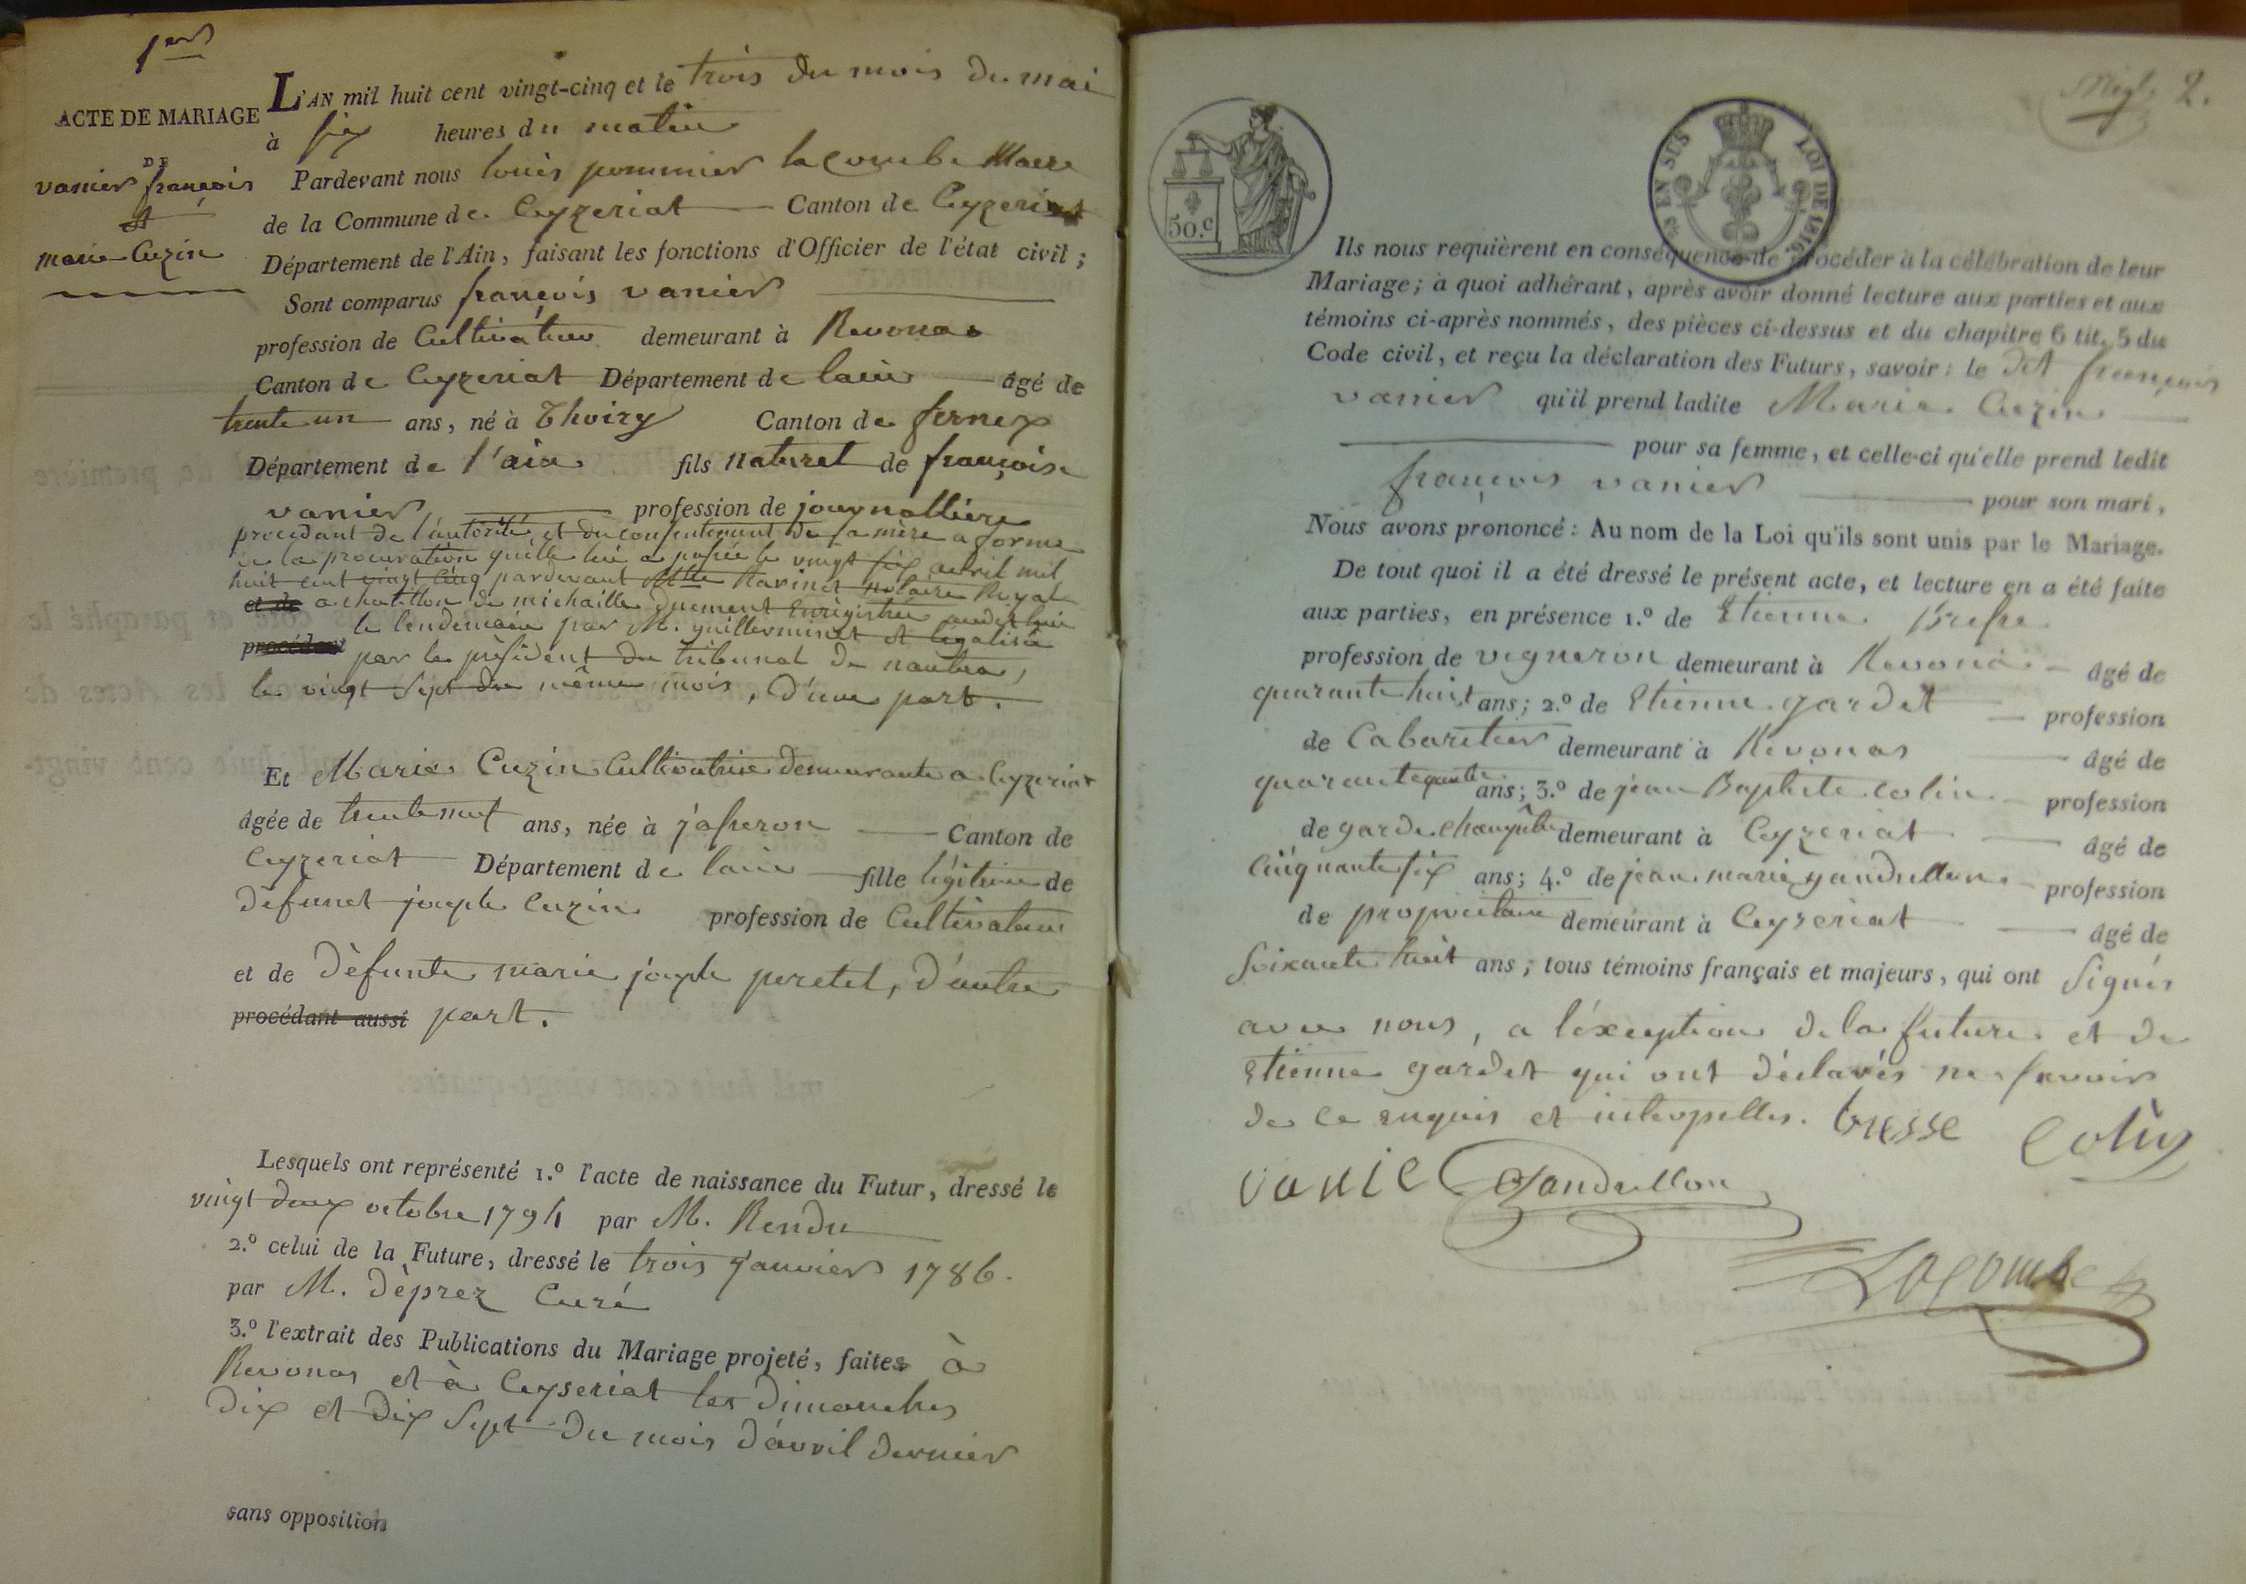 1er
ACTE DE MARIAGE
DE
vanier françois
et
marie Cuzin
L'AN mil huit cent vingt-cinq et le trois du mois du mai
à six heures du matin
Pardevant nous louis pommier lacombe Maire
de la Commune de Ceyzeriat Canton de Ceyzeriat
Département de l'Ain, faisant les fonctions d'Officier de l'état civil ;
Sont comparus françois vanier
profession de Cultivateur demeurant à Revonas
Canton de Ceyzeriat Département de lain âgé de
trente un ans, né à Thoiry Canton de fernex
Département de l'ain fils naturel de françoise
vanier profession de journalliere
procedant de l'autorité et du consentement de sa mère a forme
de la procuration quelle lui a passée le vingt six avril mil
huit cent vingt cinq pardevant Mtte Ravinet notaire Royal
et de a chatillon de michaille duement enregistrée audit lieu
le lendemain par M. guillerminet et legalisée
procédant par le président du tribunal de nantua,
le vingt sept du même mois, d'une part.
Et Marie Cuzin Cultivatrice demeurante a Ceyzeriat
âgée de trente neuf ans, née à jasseron Canton de
Ceyzeriat Département de lain fille légitime de
défunct joseph Cuzin profession de Cultivateur
et de défunte marie joseph peretet, d'autre
procédant aussi part.
Lesquels ont représenté 1.º l'acte de naissance du Futur, dressé le
vingt deux octobre 1794 par M. Rendu
2.º celui de la Future, dressé le trois janvier 1786.
par M. déprez Curé
3.º l'extrait des Publications du Mariage projeté, faites à
Revonas et à Ceyseriat les dimanches
dix et dix sept du mois d'avril dernier
sans opposition
2.
50.c
EN SUS
LOI DE 1816.
Ils nous requièrent en conséquence de procéder à la célébration de leur
Mariage ; à quoi adhérant, après avoir donné lecture aux parties et aux
témoins ci-après nommés, des pièces ci-dessus et du chapitre 6 tit. 5 du
Code civil, et reçu la déclaration des Futurs, savoir : le dit françois
vanier qu'il prend ladite Marie Cuzin
pour sa femme, et celle-ci qu'elle prend ledit
françois vanier pour son mari,
Nous avons prononcé : Au nom de la Loi qu'ils sont unis par le Mariage.
De tout quoi il a été dressé le présent acte, et lecture en a été faite
aux parties, en présence 1.º de Etienne Bresse
profession de vigneron demeurant à Revonas âgé de
quarante huit ans ; 2.º de Etienne gardet profession
de Cabaretier demeurant à Revonas âgé de
quarante quatre ans ; 3.º de jean Baptiste colin profession
de garde champêtre demeurant à Ceyzeriat âgé de
cinquante six ans ; 4.º de jean marie gandrillon profession
de propriétaire demeurant à Ceyzeriat âgé de
soixante huit ans ; tous témoins français et majeurs, qui ont signés
avec nous, a l'éxception de la future et de
Etienne gardet qui ont déclarés ne savoir
de ce enquis et interpellés. bresse Colin
vanie Gandrillon
Lacombe